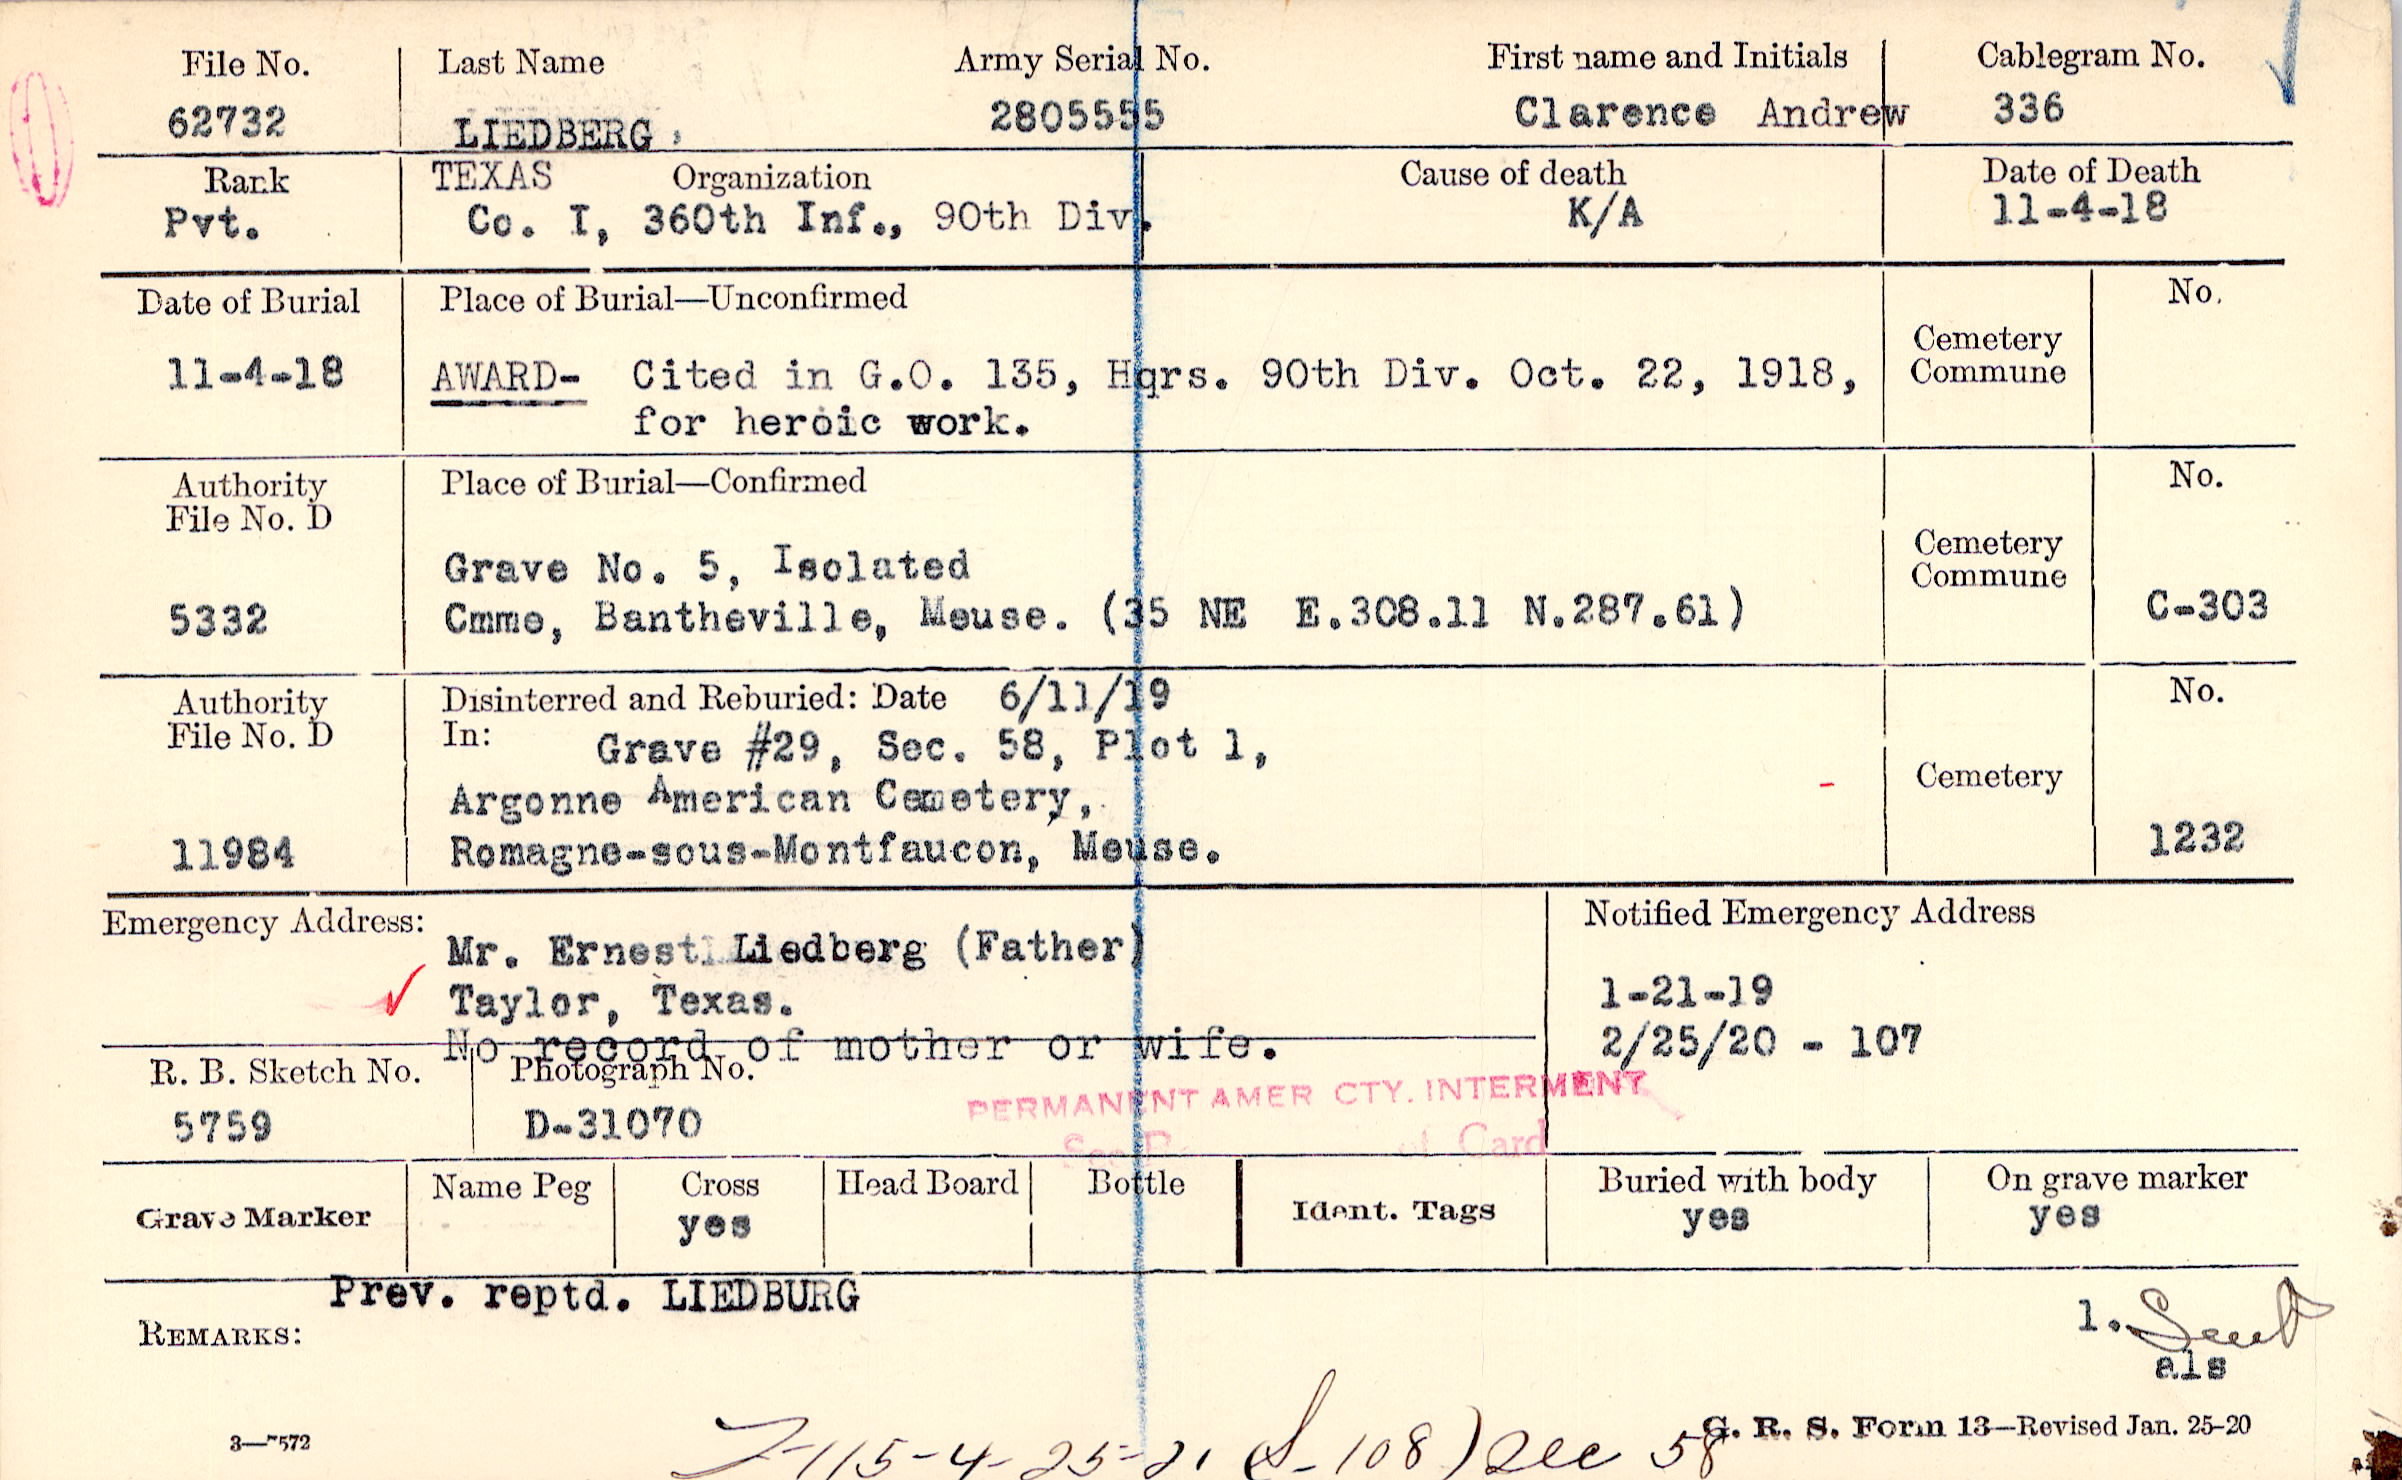 File No. Last Name Army Serial No. First name and Initials Cablegram No.
62732 LIEDBERG, 2805555 Clarence Andrew 336
Rank TEXAS Organization Cause of death Date of Death
Pvt. Co. I, 360th Inf., 90th Div. K/A 11-4-18
Date of Burial Place of Burial—Unconfirmed Cemetery Commune No.
11-4-18 AWARD- Cited in G.O. 135, Hqrs. 90th Div. Oct. 22, 1918,
for heroic work.
Authority File No. D Place of Burial—Confirmed Cemetery Commune No.
Grave No. 5, Isolated
5332 Cmme, Bantheville, Meuse. (35 NE E.308.11 N.287.61) C-303
Authority Disinterred and Reburied: Date 6/11/19 No.
File No. D In: Grave #29, Sec. 58, Plot 1,
Argonne American Cemetery, Cemetery
11984 Romagne-sous-Montfaucon, Meuse. 1232
Emergency Address: Notified Emergency Address
Mr. Ernest Liedberg (Father)
Taylor, Texas. 1-21-19
No record of mother or wife. 2/25/20 - 107
R. B. Sketch No. Photograph No.
PERMANENT AMER CTY. INTERMENT
5759 D-31070
See Card
Grave Marker Name Peg Cross Head Board Bottle Ident. Tags Buried with body On grave marker
yes yes yes
Prev. reptd. LIEDBURG
REMARKS: 1.
als
3—7572 G. R. S. Form 13—Revised Jan. 25-20
-115-4-25-21 (S-108) Sec 58